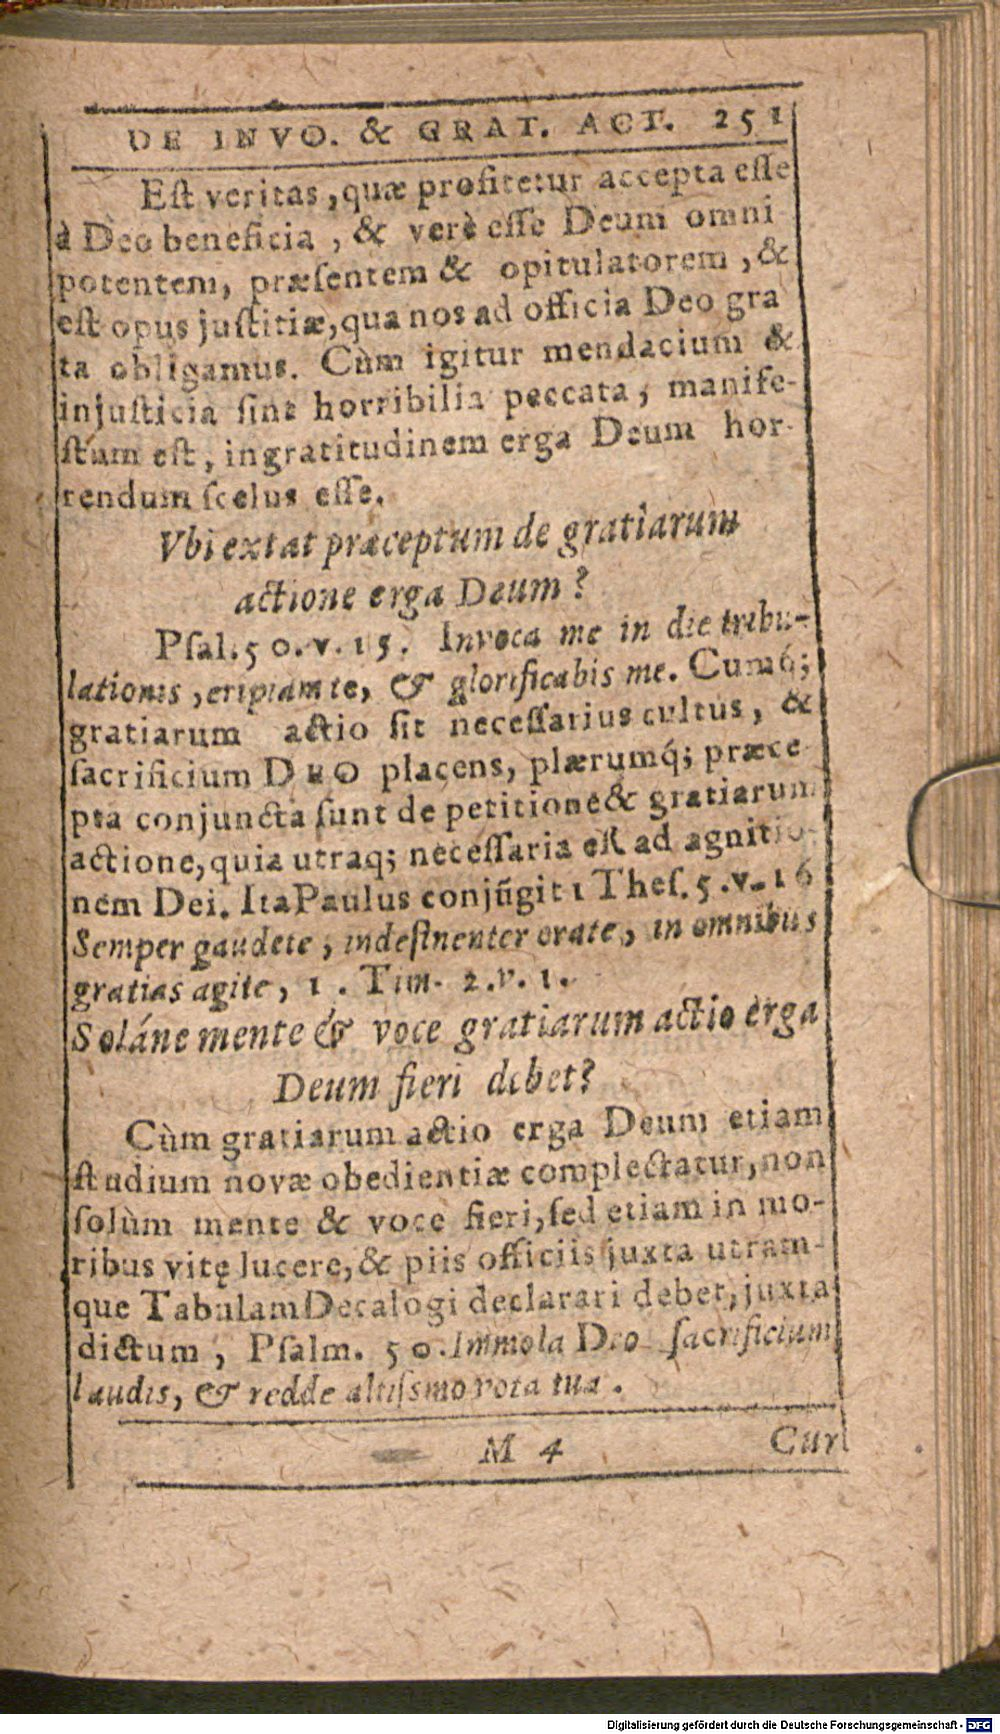 DE INVO. & GRAT. ACT. 251
Est veritas, quæ profitetur accepta esse
à Deo beneficia, & verè esse Deum omni
potentem, præsentem & opitulatorem, &
est opus justitiæ, qua nos ad officia Deo gra
ta obligamus. Cùm igitur mendacium &
injusticia sint horribilia peccata, manife-
stum est, ingratitudinem erga Deum hor-
rendum scelus esse.
Vbi extat præceptum de gratiarum
actione erga Deum?
Psal. 50. v. 15. Invoca me in die tribu-
lationis, eripiam te, & glorificabis me. Cumq́;
gratiarum actio sit necessarius cultus, &
sacrificium DEO placens, plærumq́; præce
pta conjuncta sunt de petitione & gratiarum
actione, quia utraq; necessaria est ad agnitio-
nem Dei. Ita Paulus conjũgit 1 Thes. 5. v. 16
Semper gaudete, indesinenter orate, in omnibus
gratias agite, 1. Tim. 2. v. 1.
Soláne mente & voce gratiarum actio erga
Deum fieri debet?
Cùm gratiarum actio erga Deum etiam
studium novæ obedientiæ complectatur, non
solùm mente & voce fieri, sed etiam in mo-
ribus vitę lucere, & piis officiis juxta utram-
que Tabulam Decalogi declarari debet, juxta
dictum, Psalm. 50. Immola Deo sacrificium
laudis, & redde altissmo vota tua.
M 4 Cur
Digitalisierung gefördert durch die Deutsche Forschungsgemeinschaft - DFG